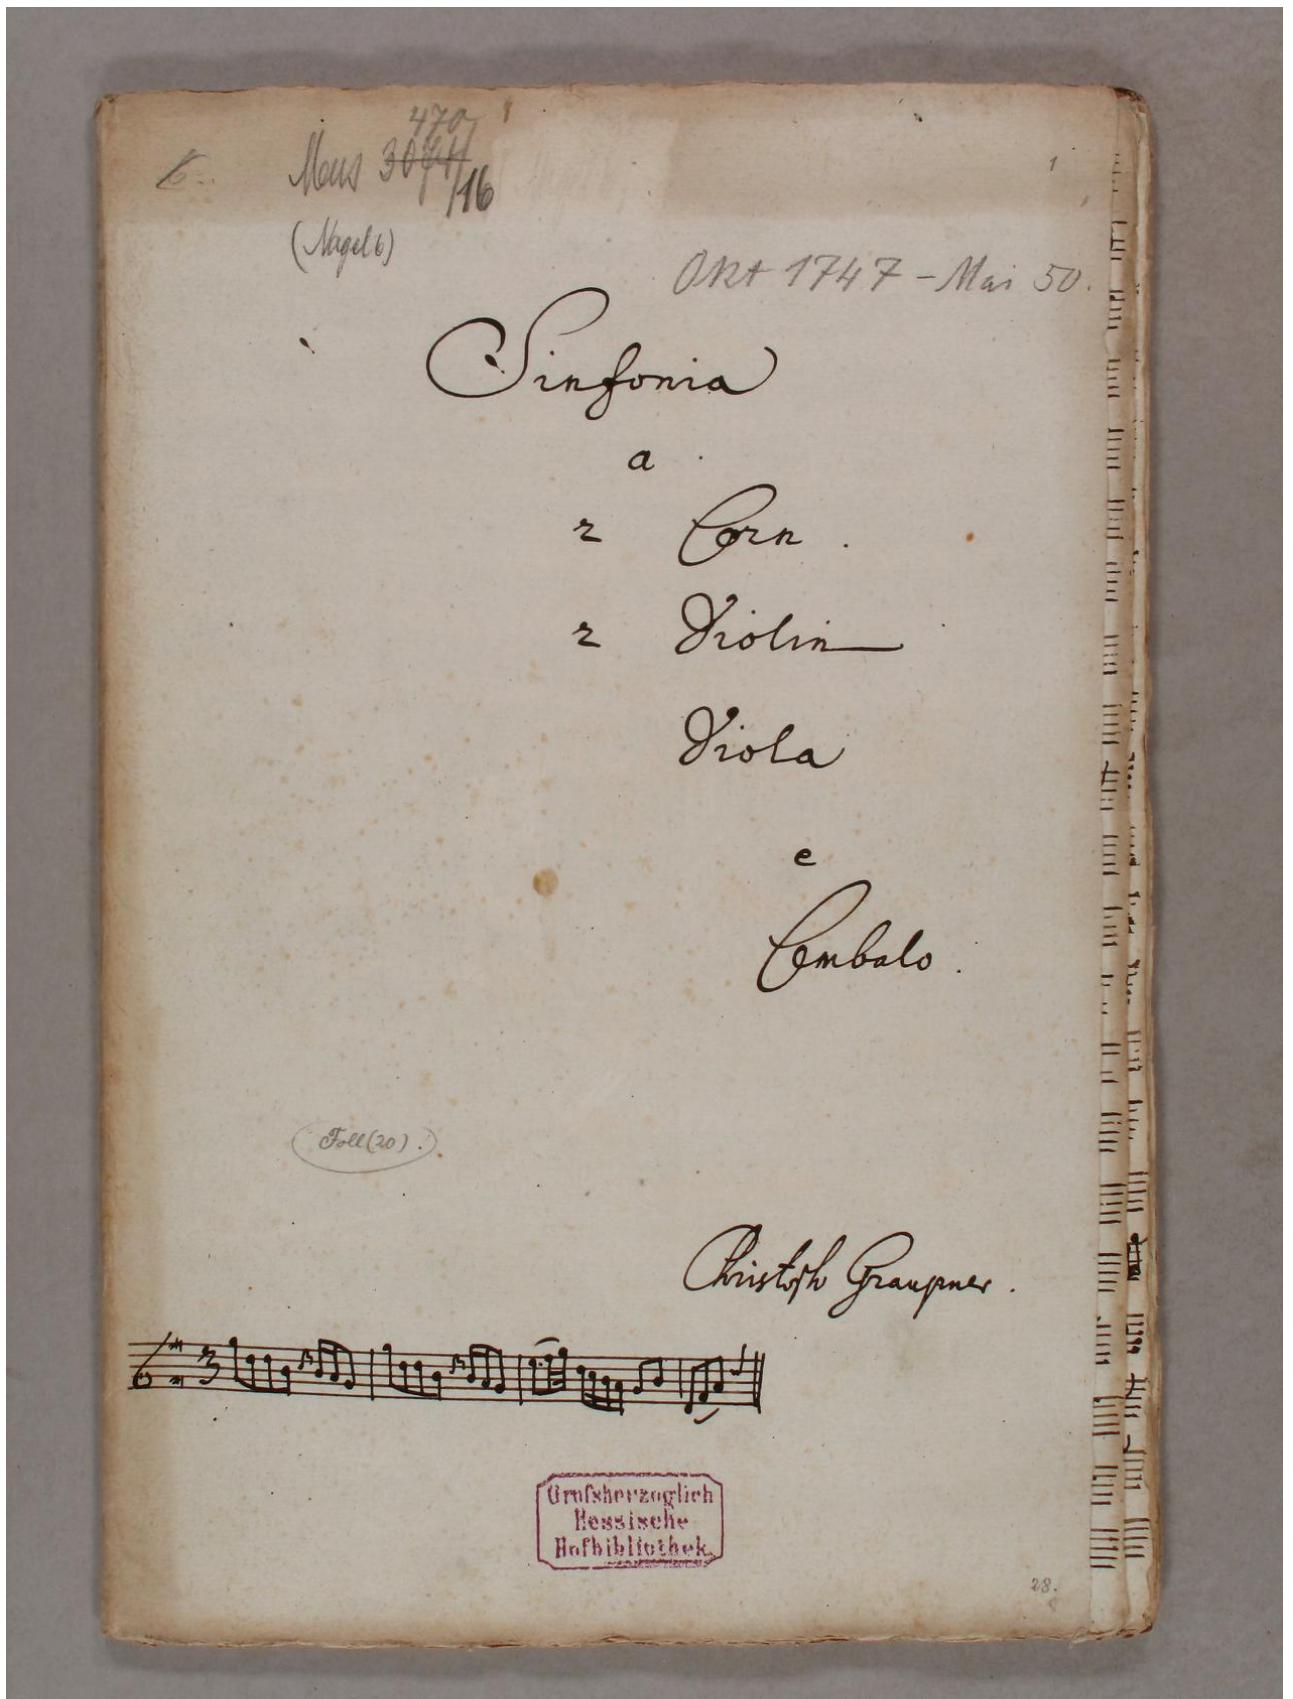 470
Mus 3071/16
1
(Nagel 6)
Okt 1747 - Mai 50.
Sinfonia
a
2 Corn.
2 Violin
Viola
e
Cembalo.
Foll(20).
Christoph Graupner.
3
Grofsherzoglich
Hessische
Hofbibliothek.
28.